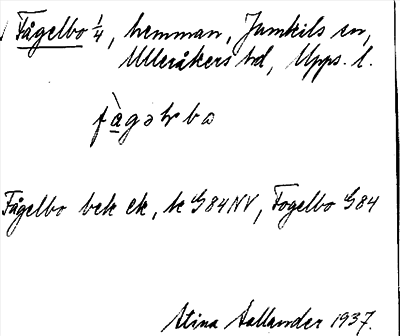 Fågelbo 1/4, hemman, Jumkils sn,
Ulleråkers hd, Upps. l.
fàgəlbo
Fågelbo bek ek, k G84NV, Fogelbo G84
Stina Hallander 1937.